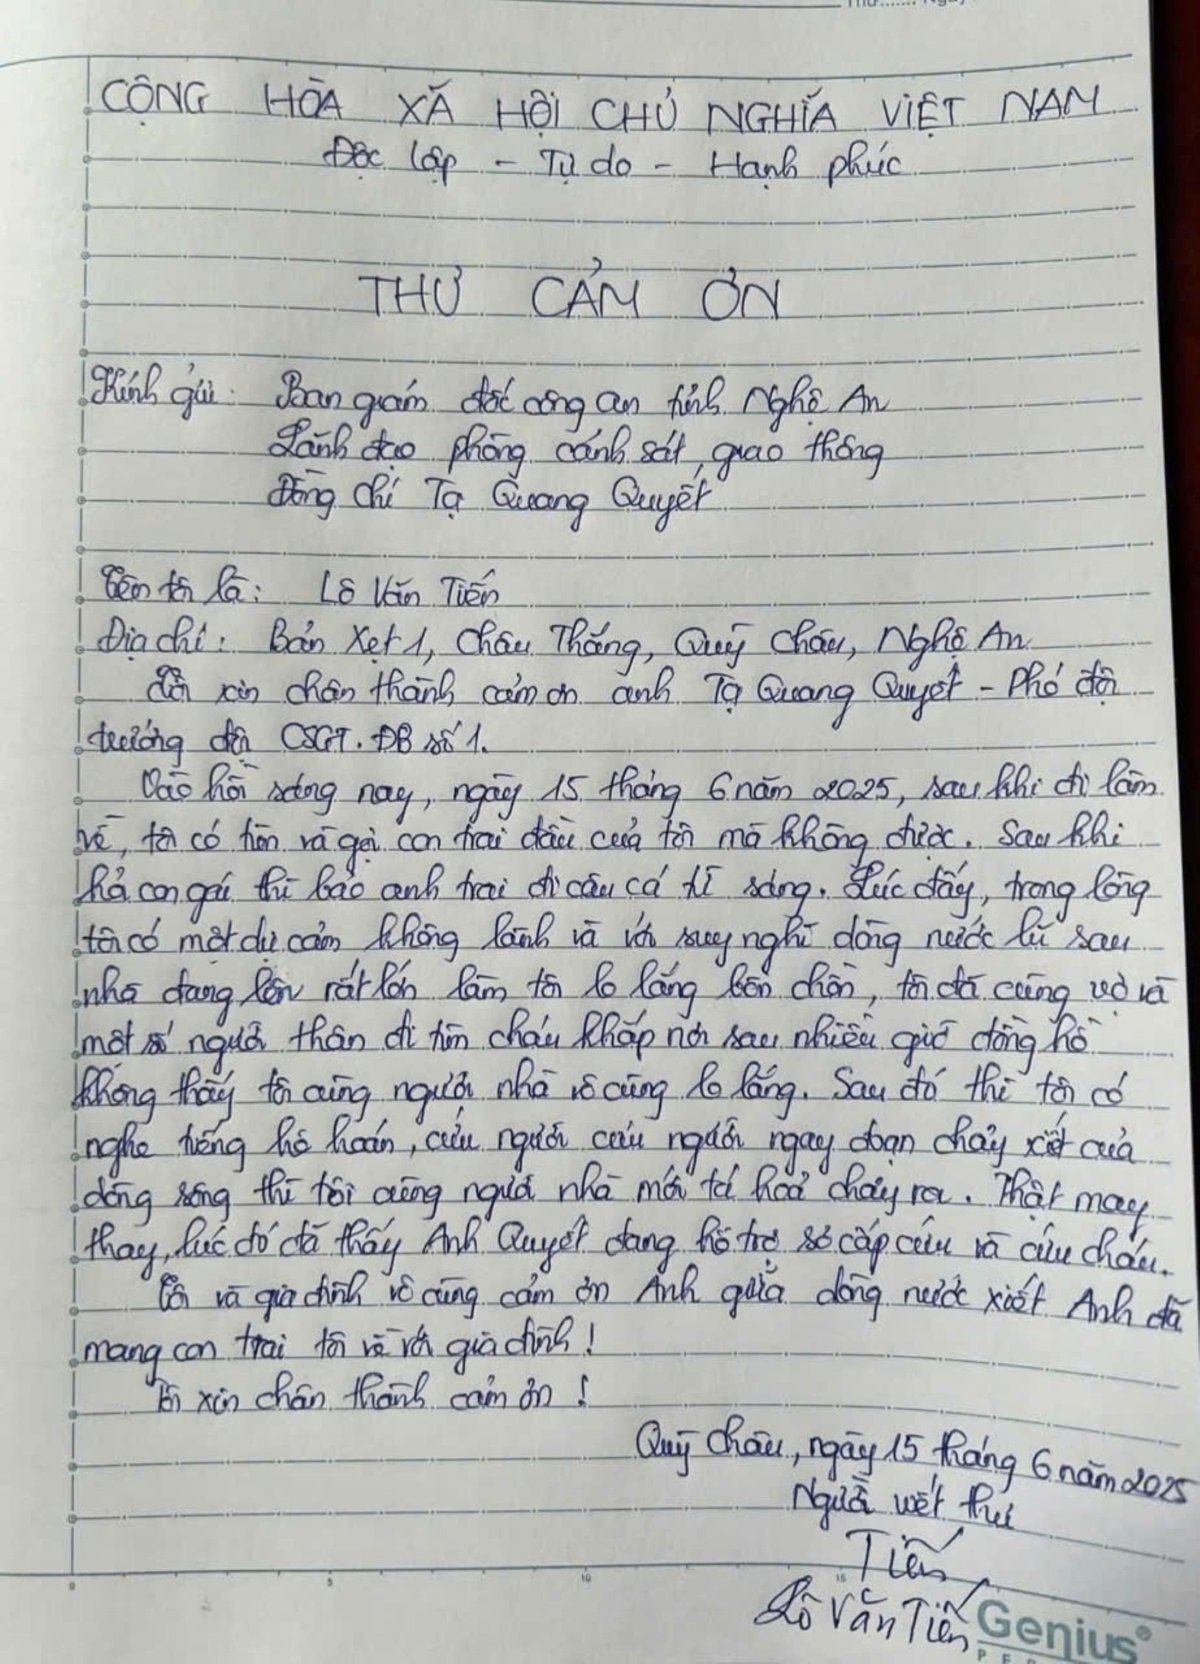 Thứ....... Ngày
CỘNG HÒA XÃ HỘI CHỦ NGHĨA VIỆT NAM
Độc lập - Tự do - Hạnh phúc
THƯ CẢM ƠN
Kính gửi: Ban giám đốc công an tỉnh Nghệ An
Lãnh đạo phòng cảnh sát, giao thông
Đồng chí Tạ Quang Quyết
Tên tôi là: Lô Văn Tiến
Địa chỉ: Bản Xẹt 1, Châu Thắng, Quỳ Châu, Nghệ An
Tôi xin chân thành cảm ơn anh Tạ Quang Quyết - Phó đội
trưởng đội CSGT.ĐB số 1.
Vào hồi sáng nay, ngày 15 tháng 6 năm 2025, sau khi đi làm
về, tôi có tìm và gọi con trai đầu của tôi mà không được. Sau khi
hỏi con gái thì bảo anh trai đi câu cá từ sáng. Lúc đấy, trong lòng
tôi có một dự cảm không lành và với suy nghĩ dòng nước lũ sau
nhà đang lên rất lớn làm tôi lo lắng bồn chồn, tôi đã cùng vợ và
một số người thân đi tìm cháu khắp nơi sau nhiều giờ đồng hồ
không thấy tôi cùng người nhà vô cùng lo lắng. Sau đó thì tôi có
nghe tiếng hô hoán, cứu người cứu người ngay đoạn chảy xiết của
dòng sông thì tôi cùng người nhà mới tá hoả chạy ra. Thật may
thay, lúc đó đã thấy Anh Quyết đang hỗ trợ sơ cấp cứu và cứu cháu.
Tôi và gia đình vô cùng cảm ơn Anh giữa dòng nước xiết Anh đã
mang con trai tôi về với gia đình!
Tôi xin chân thành cảm ơn!
Quỳ Châu, ngày 15 tháng 6 năm 2025
Người viết thư
Tiến
Lô Văn Tiến
Genius®
0 5 10 15